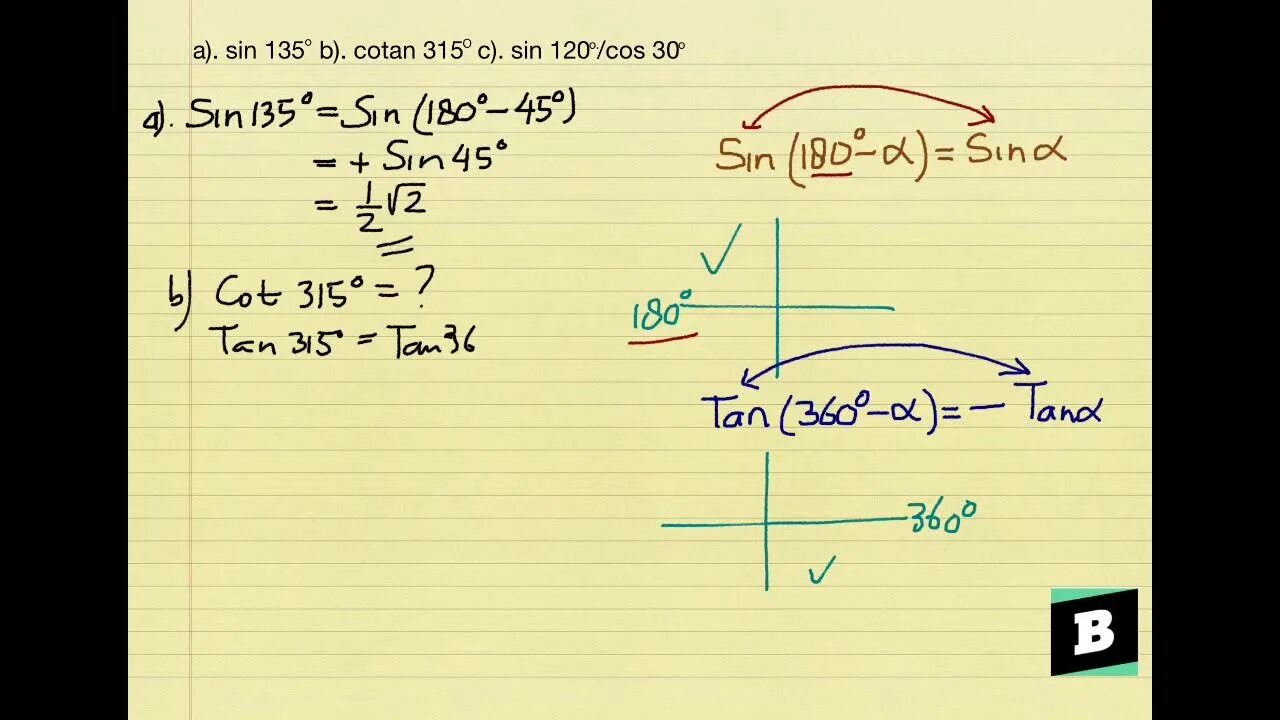 a). sin 135° b). cotan 315° c). sin 120°/cos 30°
a). Sin 135° = Sin (180° - 45°)
= + Sin 45°
= 1/2 √2
b) Cot 315° = ?
Tan 315° = Tan 36
Sin (180° - α) = Sin α
180°
Tan (360° - α) = - Tan α
360°
B